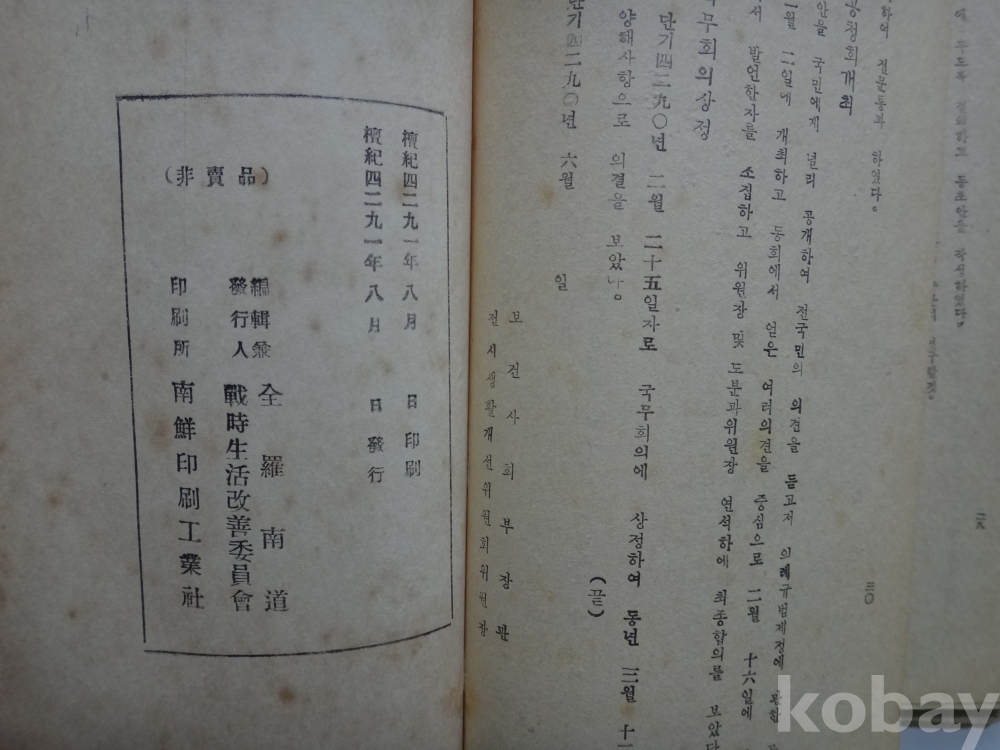 에 두도록
하여 전문통과 하였다。
공청회개최
안을 국민에게 널리 공개하여 전국민의 의견을 듣고저 의례규범제정에 관한
월 二일에 개최하고 동회에서 얻은 여러의견을 중심으로 二월 十六일에
서 발언한자를 소집하고 위원장 및 도분과위원장 연석하에 최종합의를 보았다
무회의상정
단기四二九〇년 二월 二十五일자로 국무회의에 상정하여 동년 三월 十
양해사항으로 의결을 보았나。
(끝)
단기四二九〇년 六월 일
보건사회부장관
전시생활개선위원회위원장
二九
三〇
檀紀四二九一年八月 日印刷
檀紀四二九一年八月 日發行
(非賣品)
編輯兼 全羅南道
發行人 戰時生活改善委員會
印刷所 南鮮印刷工業社
kobay